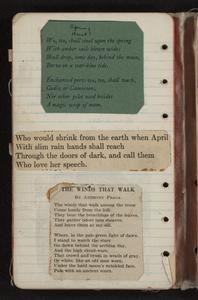 Spring
We, too, shall steal upon the spring
With amber sails blown wide;
Shall drop, some day, behind the moon,
Borne on a star-blue tide.
Enchanted ports we, too, shall touch,
Cadiz or Cameroon;
Nor other pilot need beside
A magic wisp of moon.
Who would shrink from the earth when April
With slim rain hands shall reach
Through the doors of dark, and call them
Who love her speech.
THE WINDS THAT WALK
BY ANTHONY PRAGA
The winds that walk among the trees
Come lonely from the hill;
They bear the breathings of the leaves,
They gather silver rain showers,
And leave them at my sill.
Where, in the pale green light of dawn,
I stand to watch the stars
Go down behind the arching sky,
And the high cloud-wars,
They crowd and crush in wraith of gray,
Or white, like an old man worn,
Under the hard moon's wrinkled face,
Pale with an ancient scorn.